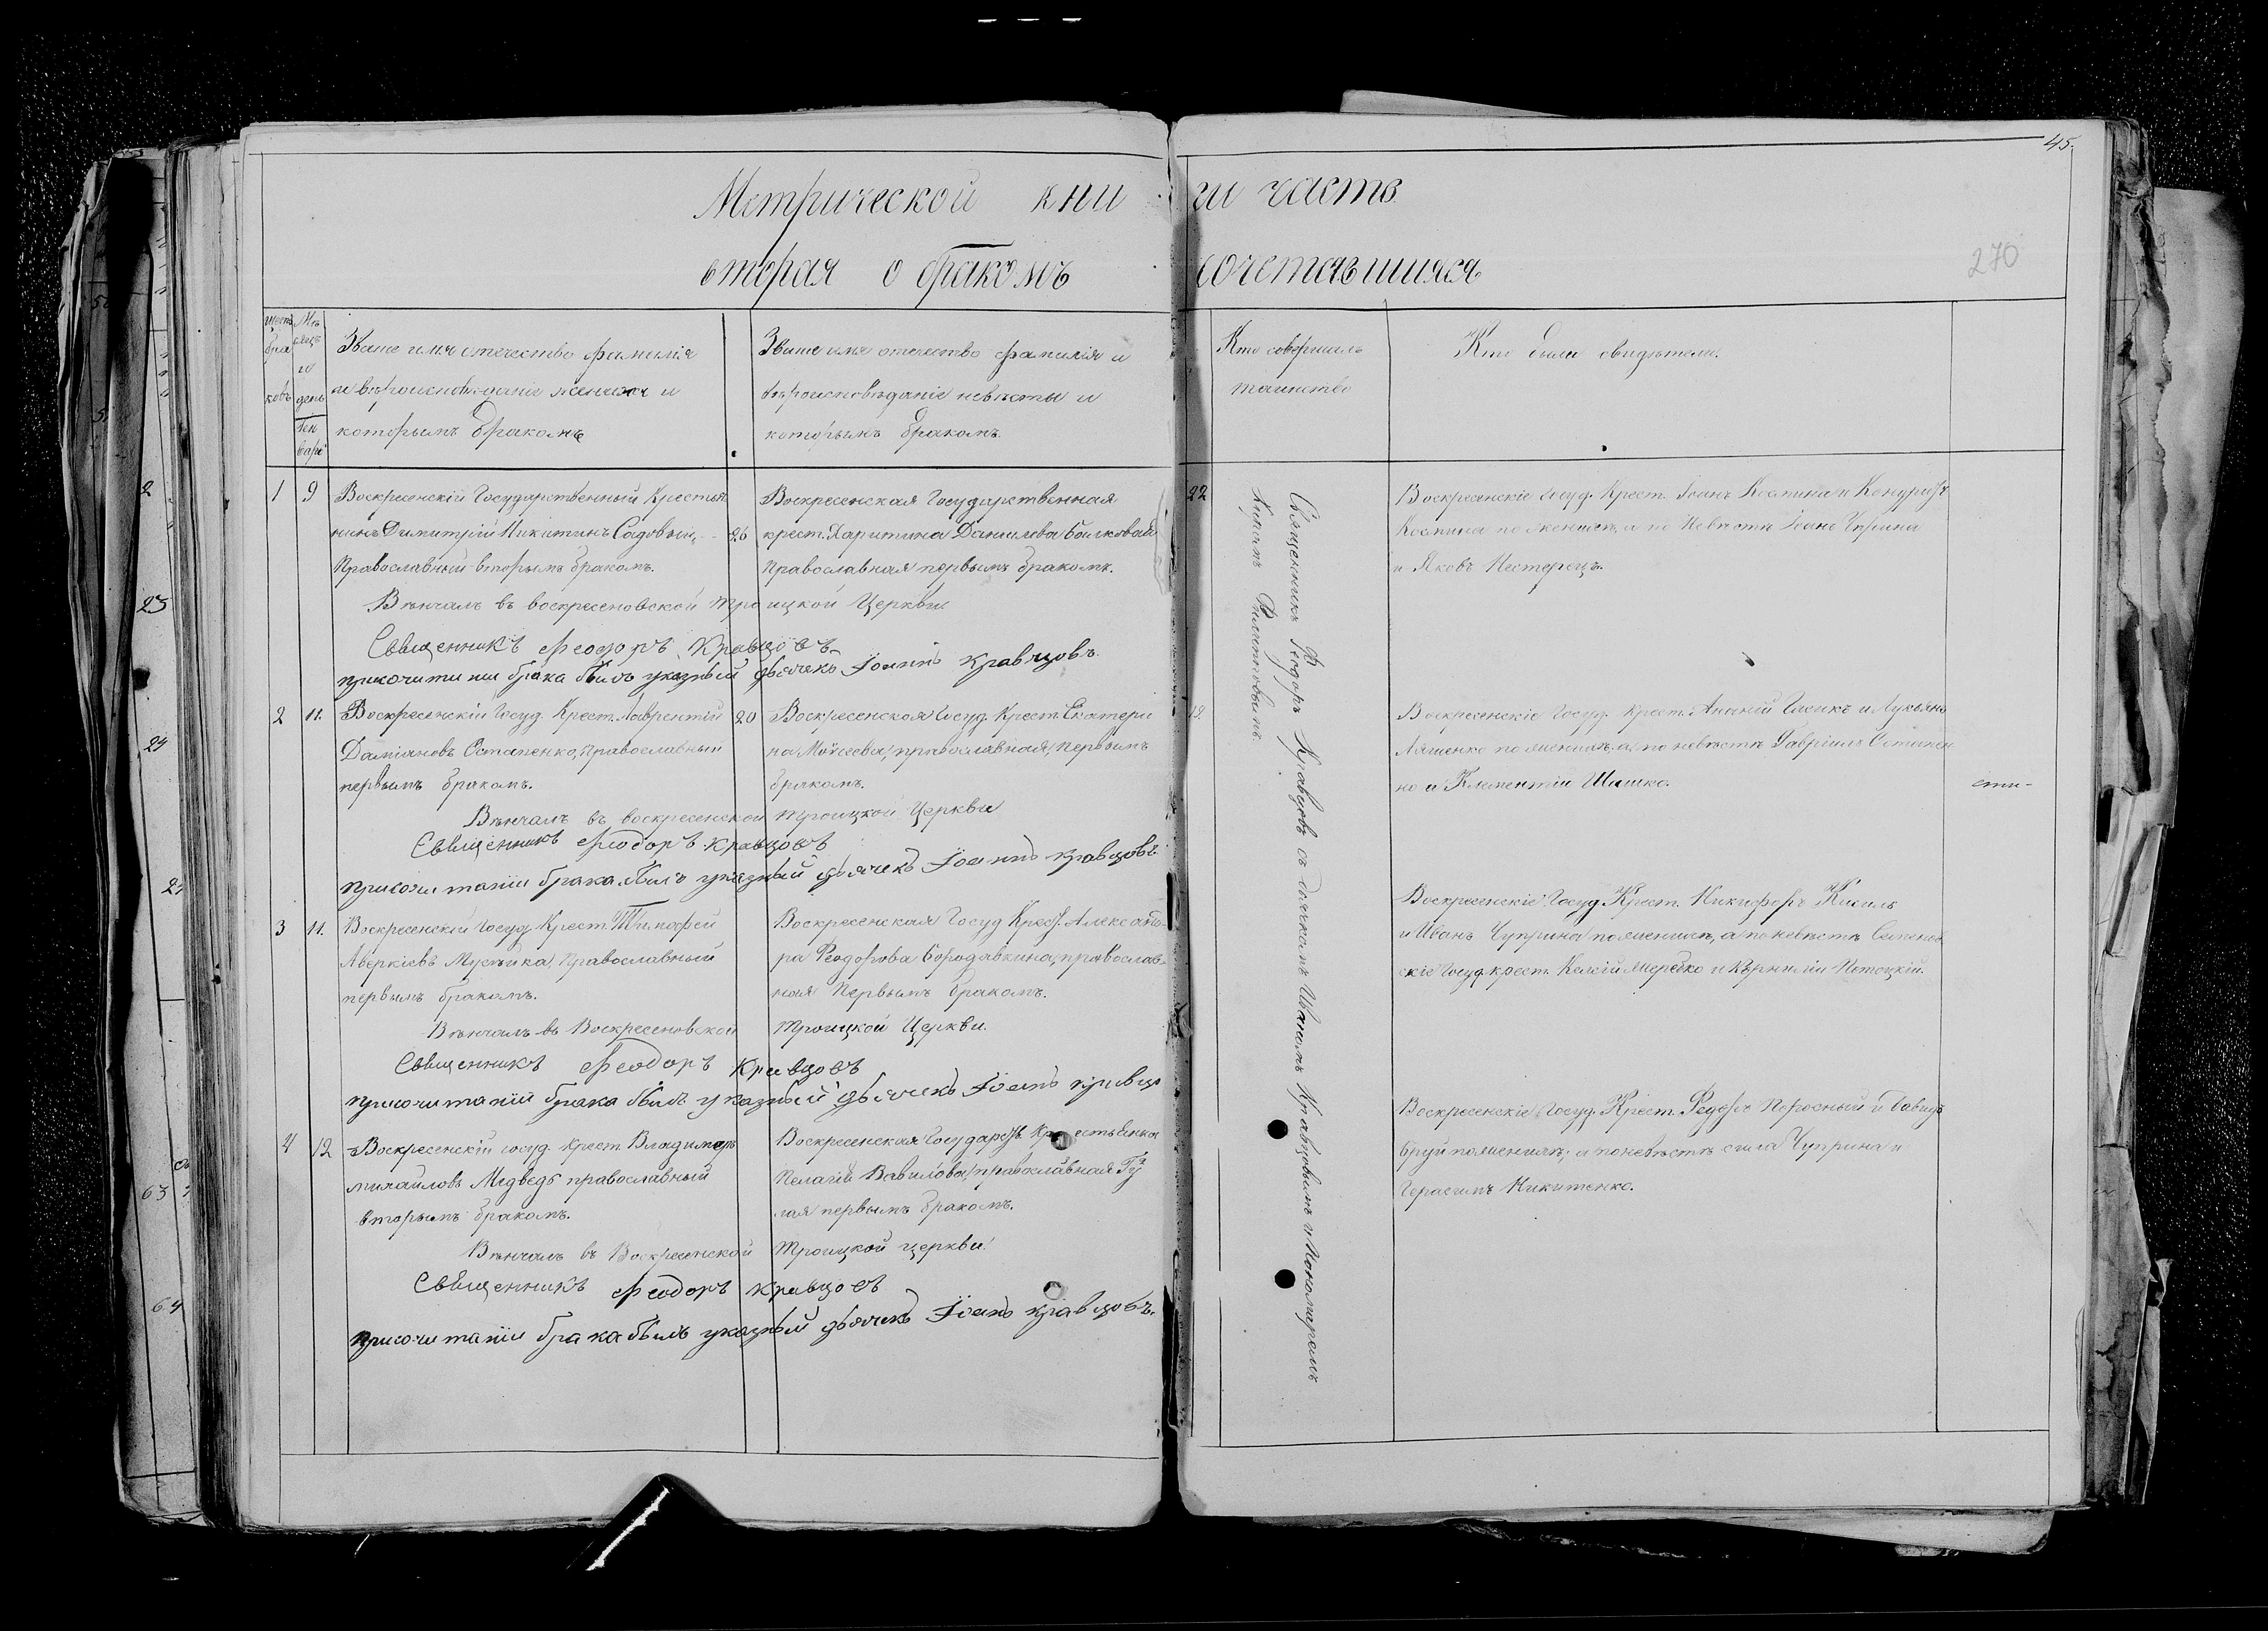 45.
Метрической кни ги часть
вторая о бракомъ сочетавшихся
270
Щетъ браковъ
Мѣсяцъ и день
Генварь
Званіе имя отечество фамилія
и вѣроисповѣданіе жениха и
которымъ бракомъ
Званіе имя отечество фамилія и
вѣроисповѣданіе невѣсты и
которымъ бракомъ.
Кто совершалъ
таинство
Кто были свидѣтели.
1 9 Воскресенскій Государственный Крестья
нинъ Димитрій Никитинъ Садовый, 26
Православный вторымъ бракомъ.
Воскресенская Государственная
крест. Харитина Даніилова
Православная первымъ бракомъ.
22
Воскресенскіе Госуд. Крест. Іоанъ Коспина и Кондратъ
Коспина по женихѣ, а по Невѣстѣ Іоанъ Чуприна
и Яковъ Нестерецъ.
Вѣнчалъ въ воскресеновской Троицкой Церкви
Священникъ Феодоръ Кравцовъ
при сочитании брака былъ указный дьячекъ Іоаннъ Кравцовъ.
2 11. Воскресенскій Госуд. Крест. Лаврентій 20
Даміановъ Остапенко, Православный
первымъ бракомъ.
Воскресенская Госуд. Крест. Екатери
на Моисеева, православная, первымъ
бракомъ.
19.
Воскресенскіе Госуд. Крест. Ананій Гасикъ и Лукьянъ
Ляшенко по женихѣ, а по невѣстѣ Гавріилъ Остапен
ко и Климентій Шишко.
сти-
Вѣнчалъ въ воскресенской Троицкой Церкви
Священникъ Феодоръ Кравцовъ
при сочитаніи брака былъ указный дьячекъ Іоаннъ Кравцовъ.
3 11. Воскресенскій Госуд. Крест. Тимофей
Аверкіевъ Православный
первымъ бракомъ.
Воскресенская Госуд. Крест. Александ
ра Феодорова Бородавкина, православ
ная Первымъ бракомъ.
Воскресенскіе Госуд. Крест. Никифоръ Кисиль
и Иванъ Чуприна по женихѣ, а по невѣстѣ Семенов
скіе Госуд. крест. Мережко и Корнилій Потоцкій.
Вѣнчалъ въ Воскресеновской Троицкой Церкви.
Священникъ Феодоръ Кравцовъ
при сочитаніи брака былъ указный дьячекъ Іоанъ Кравцо
4 12 Воскресенскій госуд. крест. Владимеръ
Михайловъ Медведь православный
вторымъ бракомъ.
Воскресенская Государств. Крестьянка
Пелагія Вавилова, православная Гу
лая первымъ бракомъ.
Воскресенскіе Госуд. Крест. Федоръ Поросный и Давидъ
Бруй по женихѣ, а по невѣстѣ Сила Чуприна и
Герасимъ Никитенко.
Вѣнчалъ въ Воскресенской Троицкой церкви.
Священникъ Феодоръ Кравцовъ
при сочитаніи брака былъ указный дьячекъ Іоанъ Кравцовъ.
Священникъ Феодоръ Кравцовъ съ дьячкомъ Иваномъ Кравцовымъ и Пономаремъ
Филипповымъ.
2
23
24
63
64